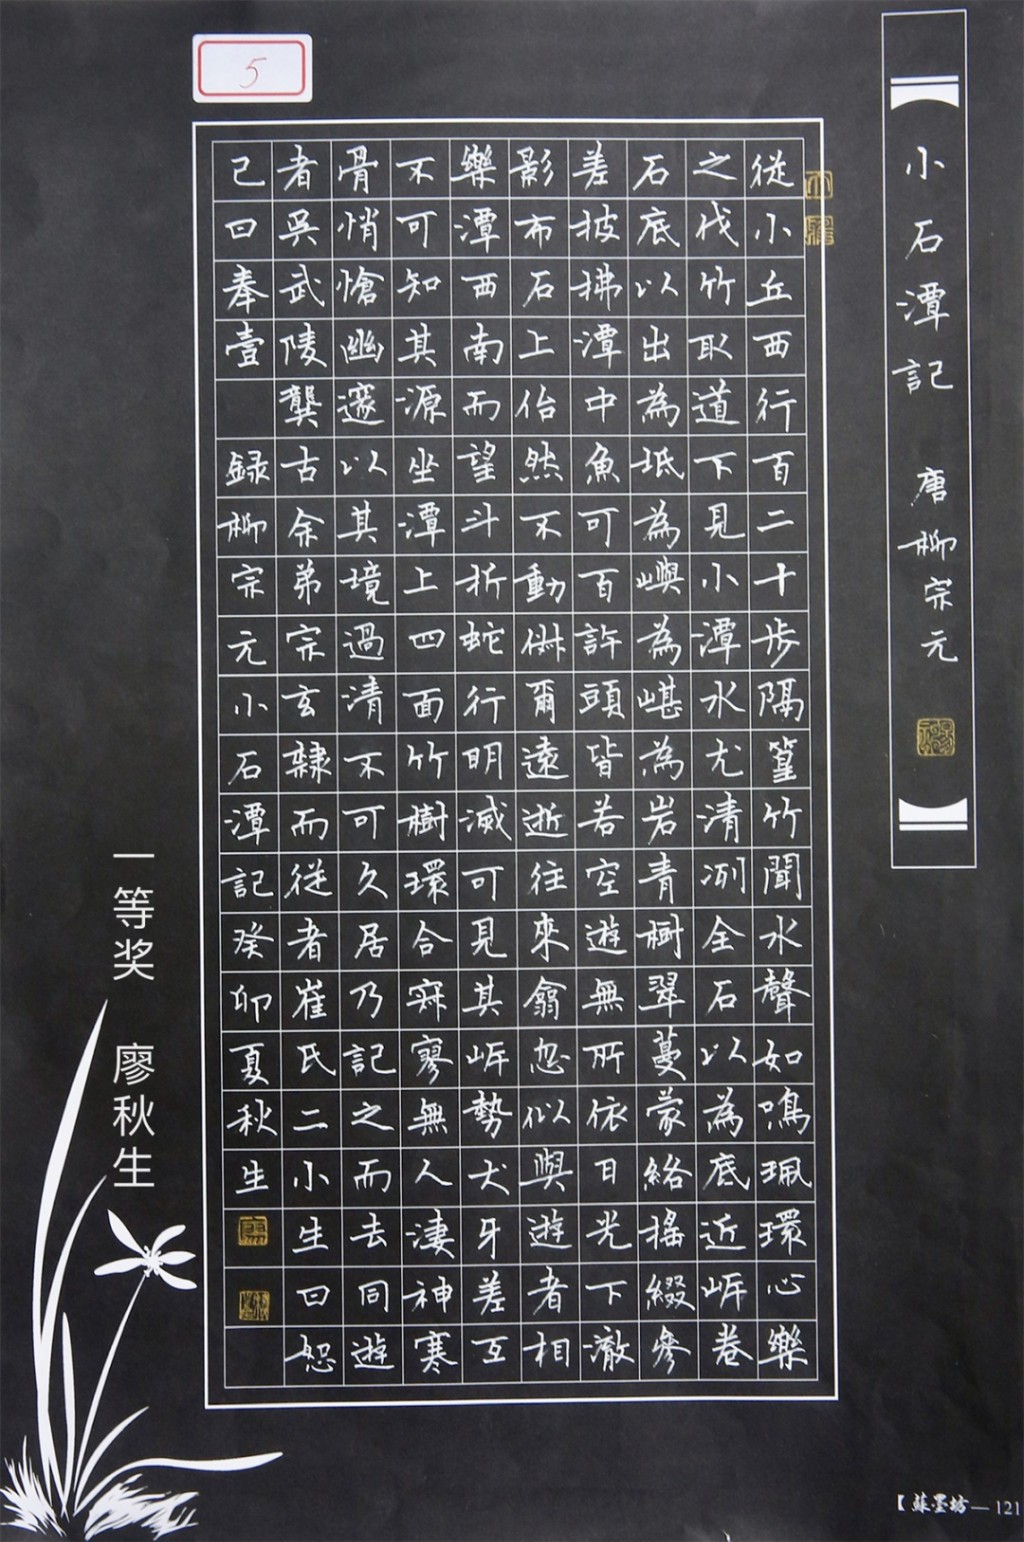 小石潭記 唐 柳宗元
從小丘西行百二十步隔篁竹聞水聲如鳴珮環心樂
之伐竹取道下見小潭水尤清冽全石以為底近岸卷
石底以出為坻為嶼為嵁為岩青樹翠蔓蒙絡搖綴參
差披拂潭中魚可百許頭皆若空遊無所依日光下澈
影布石上佁然不動俶爾遠逝往來翕忽似與遊者相
樂潭西南而望斗折蛇行明滅可見其岸勢犬牙差互
不可知其源坐潭上四面竹樹環合寂寥無人淒神寒
骨悄愴幽邃以其境過清不可久居乃記之而去同遊
者吳武陵龔古余弟宗玄隸而從者崔氏二小生曰恕
己曰奉壹 錄柳宗元小石潭記癸卯夏秋生
5
一等奖 廖秋生
【蘇墨坊—121